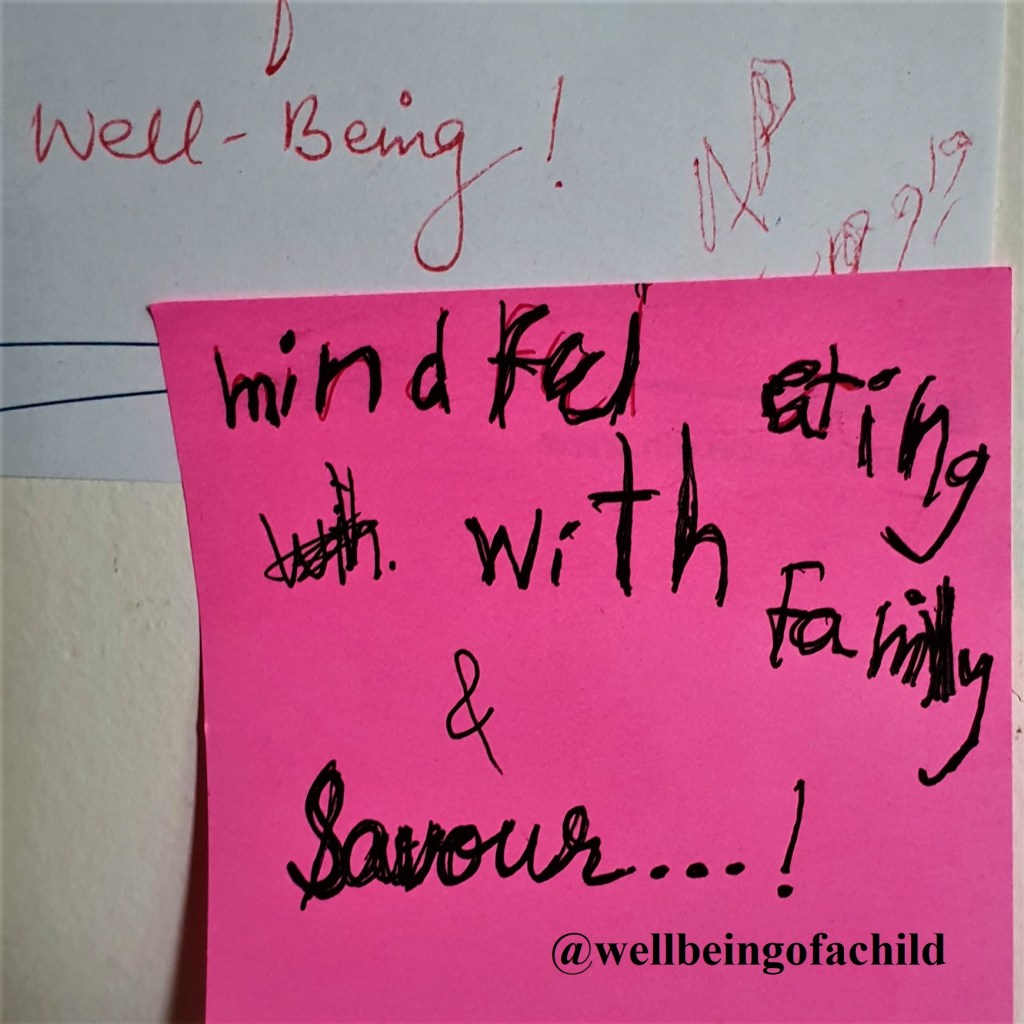 Well-Being!
mindful eating
with. with family
&
Savour...!
@wellbeingofachild